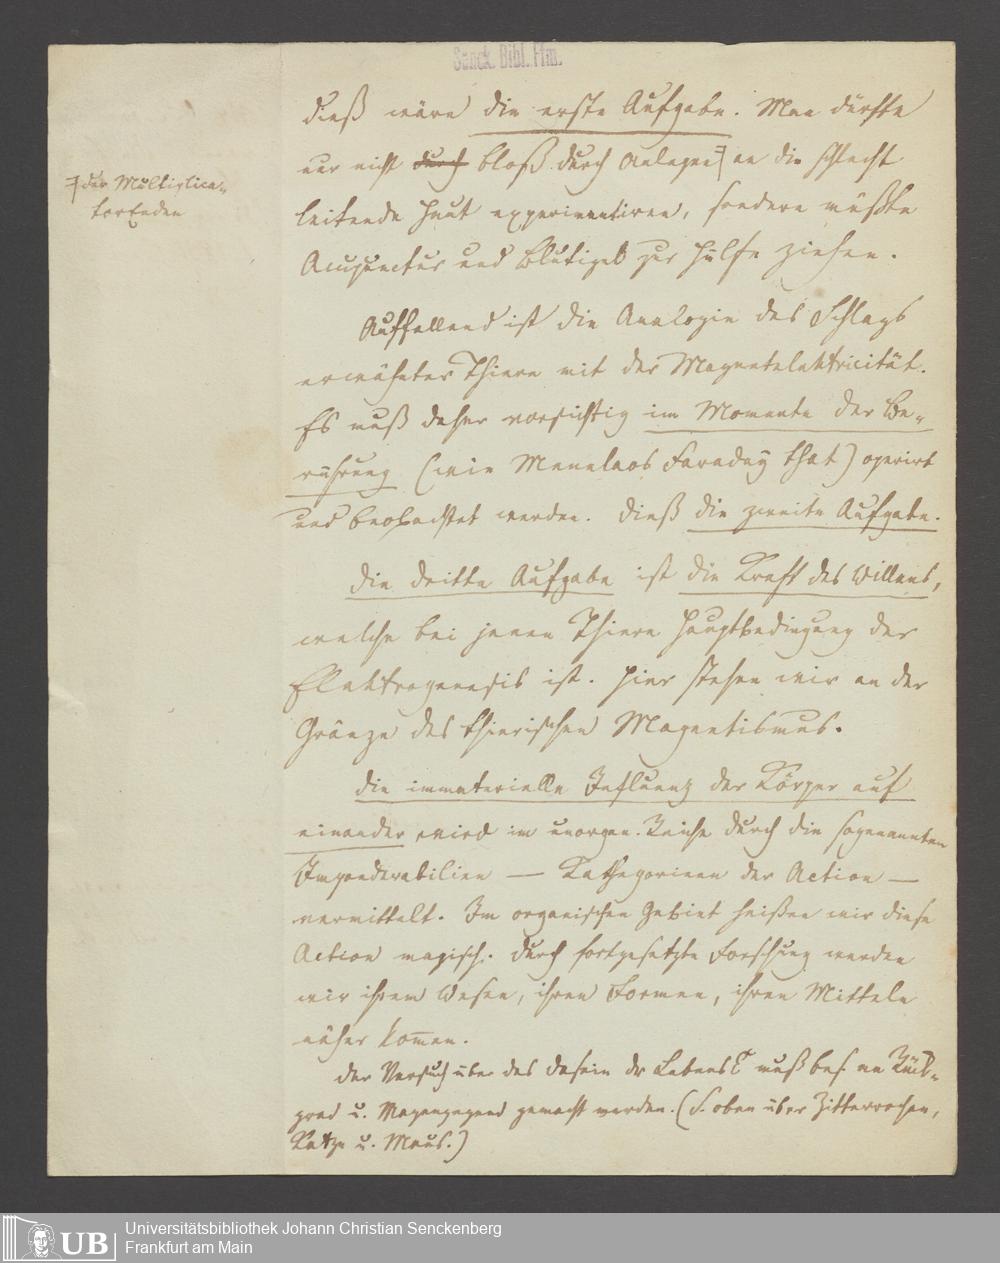 Senck. Bibl. Ffm.
dieß wäre die erste Aufgabe. Man dürfte
nur nicht durch bloß durch Anlegen an die schlecht
der Multiplica-
torEnden
leitende Haut experimentiren, sondern müßte
Acupunctur und Blutigel zur Hülfe ziehen.
Auffallend ist die Analogie des Schlags
erwähnter Thiere mit der Magnetelektricität.
Es muß daher vorsichtig im Momente der Be-
rührung (wie Menelaos Faraday that) operirt
und beobachtet werden. Dieß die zweite Aufgabe.
Die dritte Aufgabe ist die Kraft des Willens,
welche bei jenen Thieren Hauptbedingung der
Elektrogenesis ist. Hier stehen wir an der
Gränze des thierischen Magnetismus.
Die immaterielle Influenz der Körper auf
einander wird im unorgan. Reiche durch die sogenannten
Imponderabilien — Kathegorieen der Action —
vermittelt. Im organischen Gebiet heißen wir diese
Action magisch. Durch fortgesetzte Forschung werden
wir ihrem Wesen, ihren Formen, ihren Mitteln
näher kommen.
Der Versuch über das Dasein der Lebens muß bes. an Rück-
grad u. Magengegend gemacht werden. (S. oben über Zitterrochen,
Katze u. Maus.)
UB
Universitätsbibliothek Johann Christian Senckenberg
Frankfurt am Main